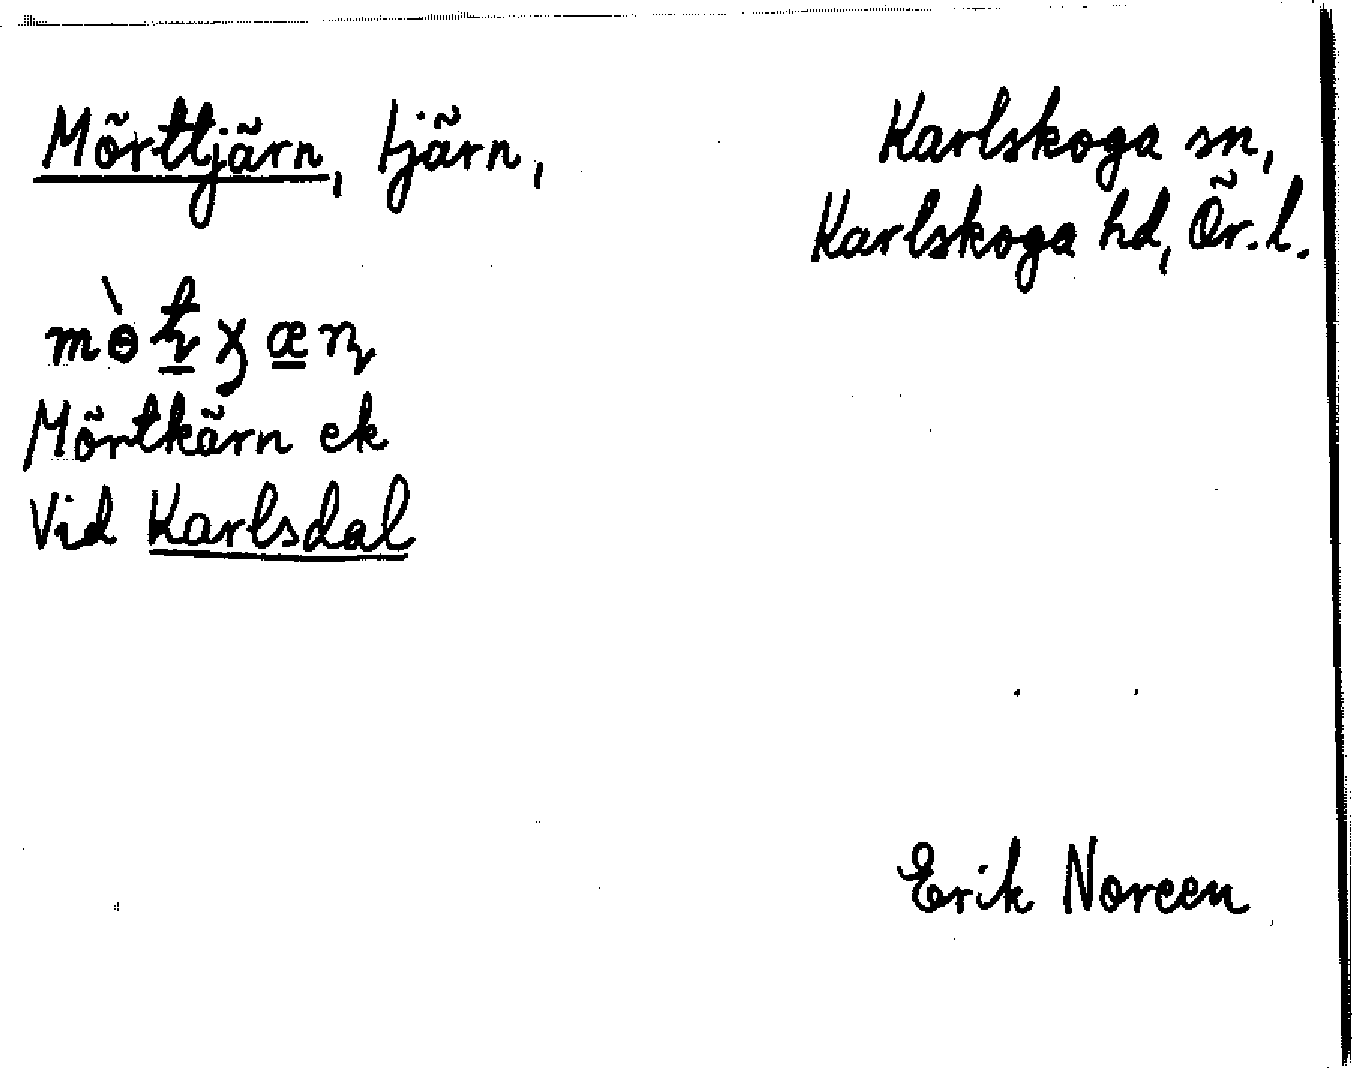 Mörttjärn, tjärn,
Karlskoga sn,
Karlskoga hd, Ör. l.
Mörtkärn ek
Vid Karlsdal
Erik Noreen